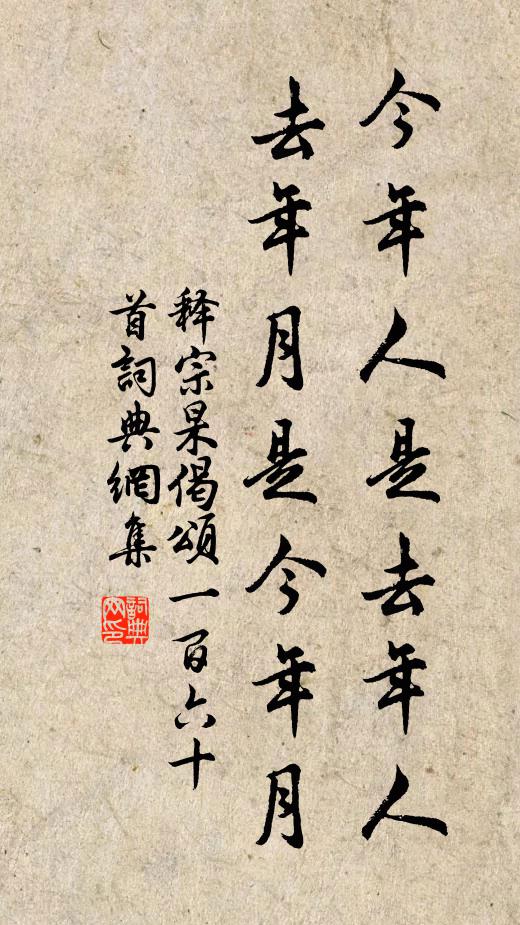 今年人是去年人
去年月是今年月
释宗杲偈頌一百六十
首詞典網集
詞典
网印